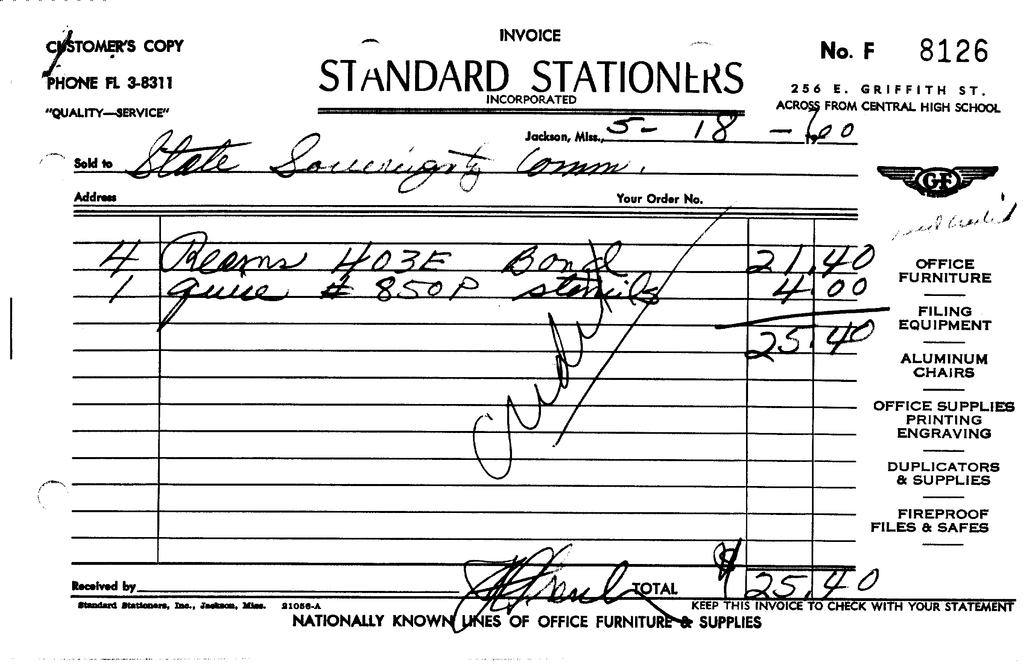 CUSTOMER'S COPY
INVOICE
No. F 8126
PHONE FL 3-8311
STANDARD STATIONERS
INCORPORATED
256 E. GRIFFITH ST.
ACROSS FROM CENTRAL HIGH SCHOOL
"QUALITY—SERVICE"
Jackson, Miss., 5-18-1960
Sold to State Sovereignty Comm.
Address Your Order No.
GF
4 Reams 403E Bond 21.40
1 quire # 850P stencils 4.00
25.40
credit
OFFICE
FURNITURE
FILING
EQUIPMENT
ALUMINUM
CHAIRS
OFFICE SUPPLIES
PRINTING
ENGRAVING
DUPLICATORS
& SUPPLIES
FIREPROOF
FILES & SAFES
Received by TOTAL $ 25.40
Standard Stationers, Inc., Jackson, Miss. 21056-A
KEEP THIS INVOICE TO CHECK WITH YOUR STATEMENT
NATIONALLY KNOWN LINES OF OFFICE FURNITURE & SUPPLIES